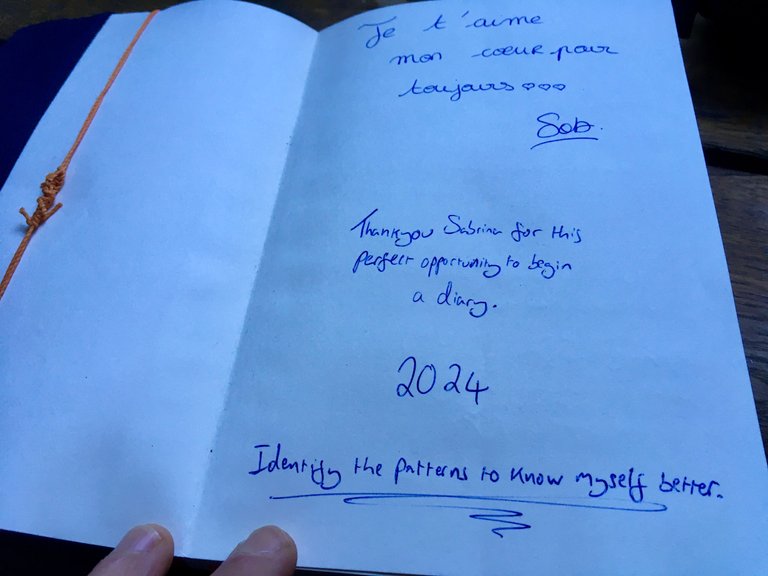 Je t'aime
mon coeur pour
toujours
Sab.
Thankyou Sabrina for this
perfect opportunity to begin
a diary.
2024
Identify the patterns to know myself better.